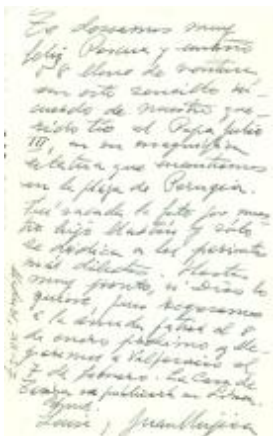 Te deseamos muy
feliz Pascua y
año lleno de ventura,
con este sencillo re-
cuerdo de nuestro que-
rido tío el Papa Julio
III, en su magnífica
estatua que encontramos
en la plaza de Perugia.
Fué sacada la foto por nues-
tro hijo y sólo
se dedica a los parientes
más dilectos. Hasta
muy pronto, si Dios lo
quiere, pues
a la
de enero próximo y lle-
garemos a Valparaíso el
7 de febrero. La Casa de
se publicará en
Louise y Juan Mujica